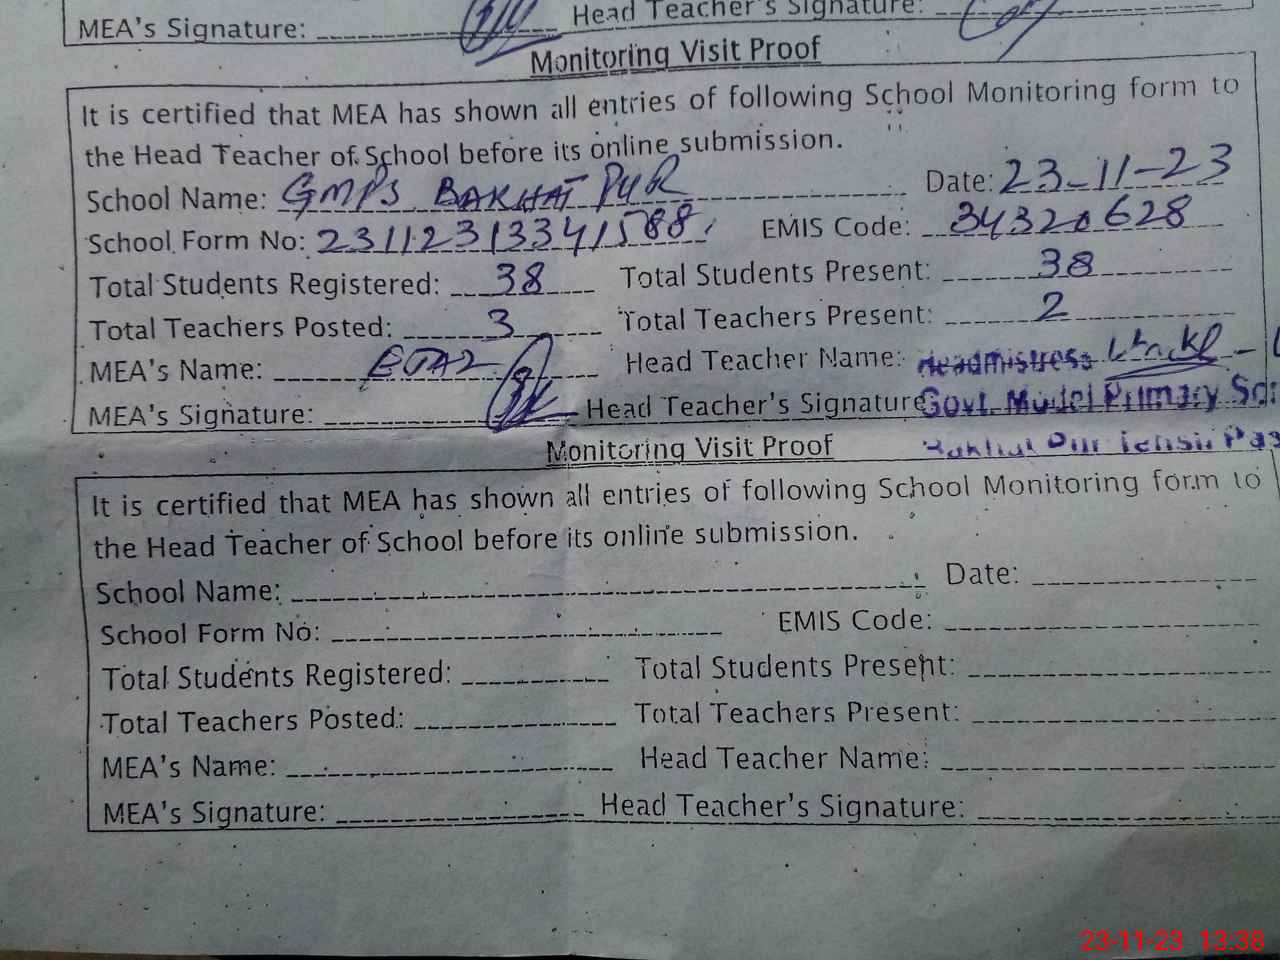 MEA's Signature: Head Teacher's Signature:
Monitoring Visit Proof
It is certified that MEA has shown all entries of following School Monitoring form to
the Head Teacher of School before its online submission.
School Name: GMPS BAKHAT PUR Date: 23-11-23
School Form No: 23112313341588 EMIS Code: 34320628
Total Students Registered: 38 Total Students Present: 38
Total Teachers Posted: 3 Total Teachers Present: 2
MEA's Name: Head Teacher Name: Headmistress
MEA's Signature: Head Teacher's Signature Govt. Model Primary
Monitoring Visit Proof
It is certified that MEA has shown all entries of following School Monitoring form to
the Head Teacher of School before its online submission.
School Name: Date:
School Form No: EMIS Code:
Total Students Registered: Total Students Present:
Total Teachers Posted: Total Teachers Present:
MEA's Name: Head Teacher Name:
MEA's Signature: Head Teacher's Signature:
23-11-23 13:38